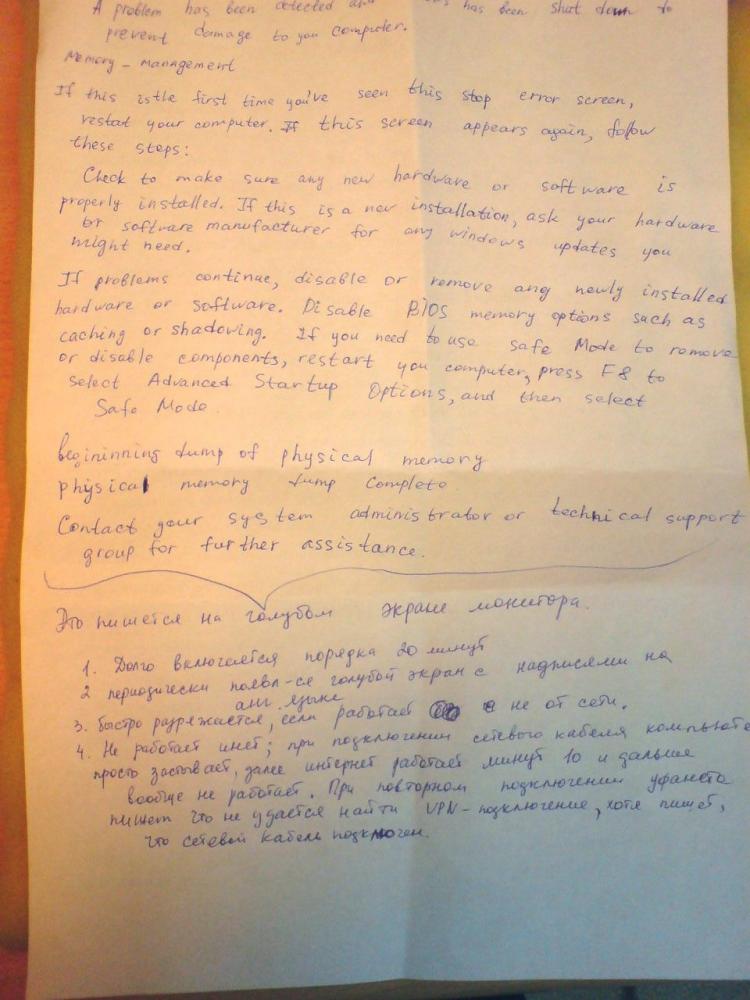 A problem has been detected and has been shut down to
prevent damage to you computer.
Memory - management
If this is the first time you've seen this stop error screen,
restat your computer. If this screen appears again, follow
these steps:
Check to make sure any new hardware or software is
properly installed. If this is a new installation, ask your hardware
or software manufacturer for any windows updates you
might need.
If problems continue, disable or remove any newly installed
hardware or software. Disable BIOS memory options such as
caching or shadowing. If you need to use safe Mode to remove
or disable components, restart you computer, press F8 to
select Advanced Startup Options, and then select
Safe Mode.
begininning dump of physical memory
physical memory dump complete.
Contact your system administrator or technical support
group for further assistance.
Это пишется на голубом экране монитора.
1. Долго включается порядка 20 минут
2 периодически появл-ся голубой экран с надписями на
анг. языке
3. Быстро разряжается, если работает не от сети.
4. Не работает инет; при подключении сетевого кабеля компьюте
просто застывает, далее интернет работает минут 10 и дальше
вообще не работает. При повторном подключении уфанета
пишет что не удается найти VPN-подключение, хотя пишет,
что сетевой кабель подключен.